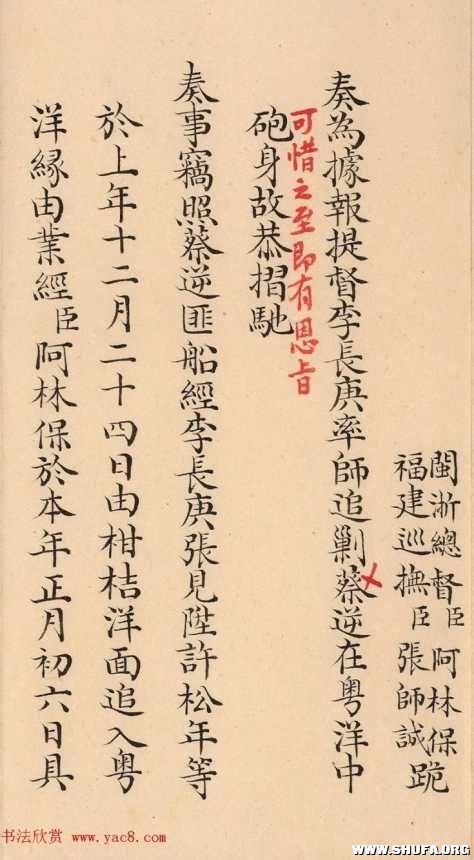 閩浙總督臣阿林保跪
福建巡撫臣張師誠
奏為據報提督李長庚率師追剿蔡逆在粵洋中
可惜之至即有恩旨
砲身故恭摺馳
奏事竊照蔡逆匪船經李長庚張見陞許松年等
於上年十二月二十四日由柑桔洋面追入粵
洋緣由業經臣阿林保於本年正月初六日具
书法欣赏 www.yac8.com
WWW.SHUFA.ORG